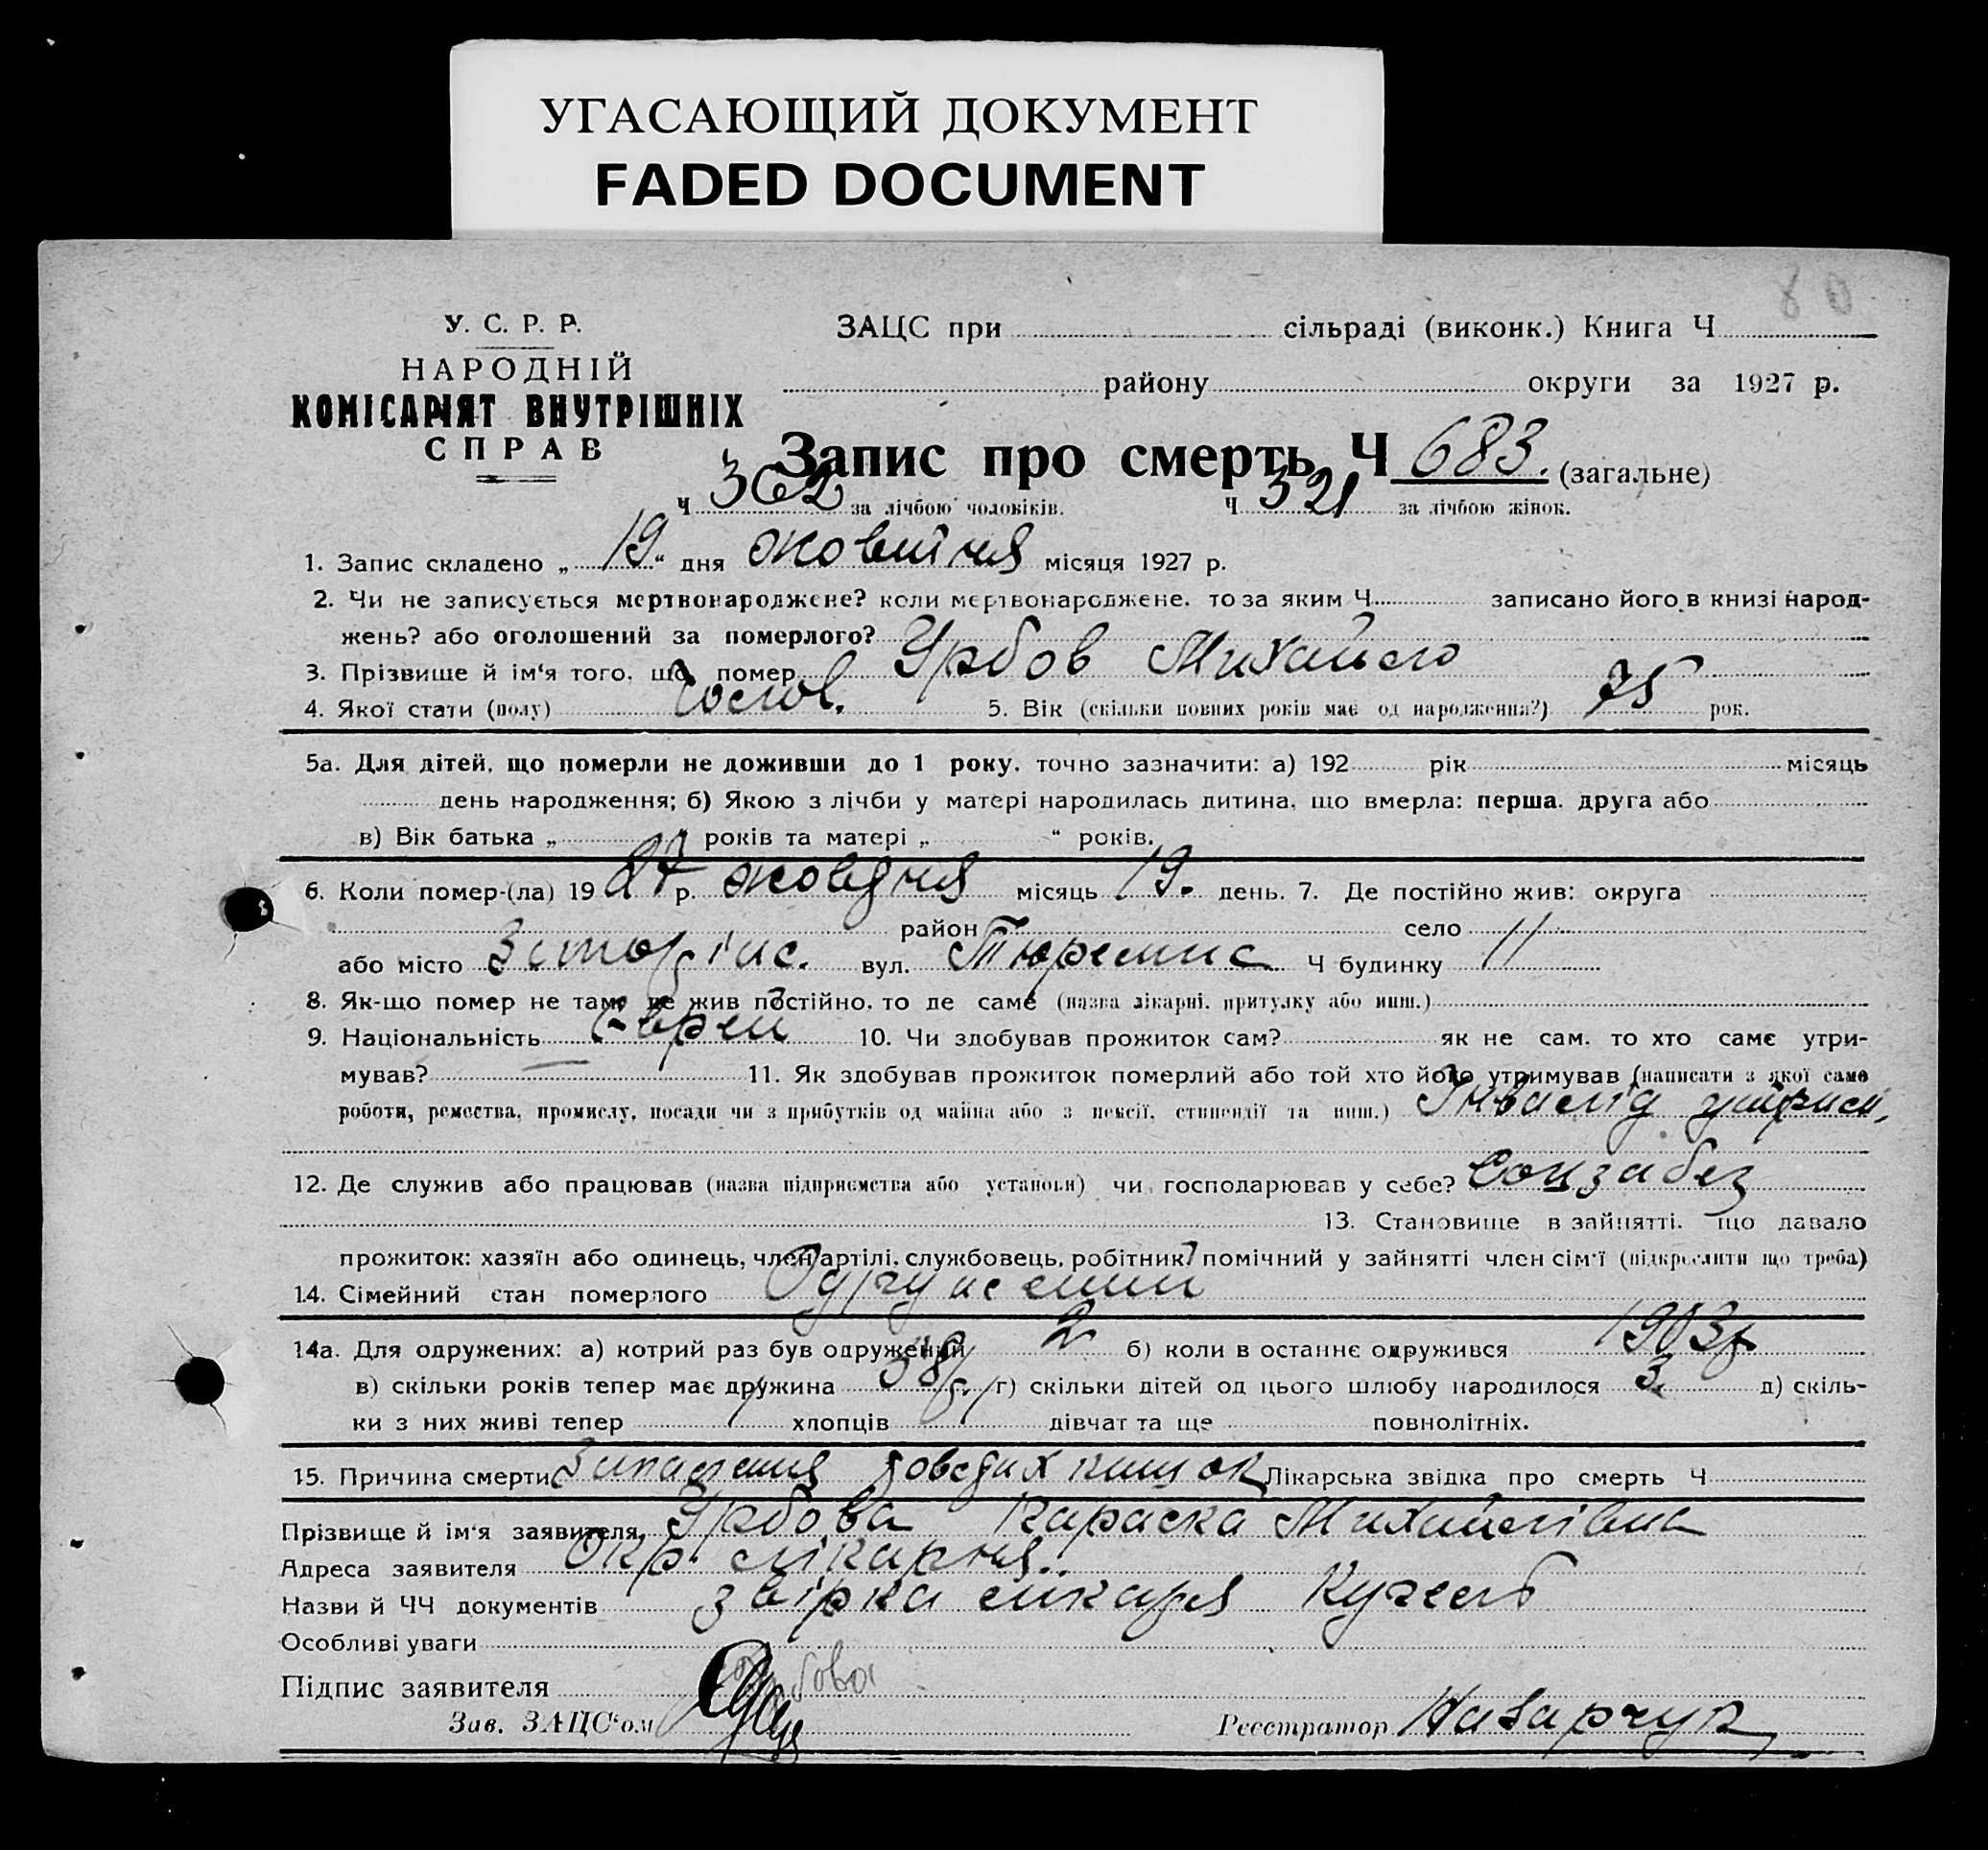 УГАСАЮЩИЙ ДОКУМЕНТ
FADED DOCUMENT
80
У. С. Р. Р.
НАРОДНІЙ
КОМІСАРІЯТ ВНУТРІШНІХ
СПРАВ
ЗАЦС при сільраді (виконк.) Книга Ч
району округи за 1927 р.
Запис про смерть Ч 683. (загальне)
Ч 362 за лічбою чоловіків. Ч 321 за лічбою жінок.
1. Запис складено „19“ дня жовтня місяця 1927 р.
2. Чи не записується мертвонароджене? коли мертвонароджене, то за яким Ч записано його в книзі народ-
жень? або оголошений за померлого?
3. Прізвище й ім'я того, що помер Урбов Михайло
4. Якої стати (полу) чолов. 5. Вік (скільки повних років має од народження?) 75 рок.
5а. Для дітей, що померли не доживши до 1 року, точно зазначити: а) 192 рік місяць
день народження; б) Якою з лічби у матері народилась дитина, що вмерла: перша, друга або
в) Вік батька „ років та матері „ “ років.
6. Коли помер-(ла) 1927 р. жовдня місяць 19. день. 7. Де постійно жив: округа
район село
або місто вул. Ч будинку 11
8. Як-що помер не там, де жив постійно, то де саме (назва лікарні, притулку або инш.)
9. Національність Єврей 10. Чи здобував прожиток сам? як не сам, то хто саме утри-
мував? 11. Як здобував прожиток померлий або той хто його утримував (написати з якої саме
роботи, ремества, промислу, посади чи з прибутків од майна або з пенсії, стипендії та инш.) Інвалід
12. Де служив або працював (назва підприємства або установи) чи господарював у себе? Соцзабез
13. Становище в зайнятті, що давало
прожиток: хазяїн або одинець, член артілі, службовець, робітник, помічний у зайнятті член сім'ї (підкреслити що треба)
14. Сімейний стан померлого Одружений
14а. Для одружених: а) котрий раз був одружений 2 б) коли в останнє одружився 1903 р.
в) скільки років тепер має дружина 58 р. г) скільки дітей од цього шлюбу народилося 3. д) скіль-
ки з них живі тепер 1 хлопців 1 дівчат та ще повнолітніх.
15. Причина смерти кишок Лікарська звідка про смерть Ч
Прізвище й ім'я заявителя Урбова Параска Михайлівна
Адреса заявителя Окр. лікарня.
Назви й ЧЧ документів звірка лікаря
Особливі уваги
Підпис заявителя
Зав. ЗАЦС'ом Реєстратор Назарчук